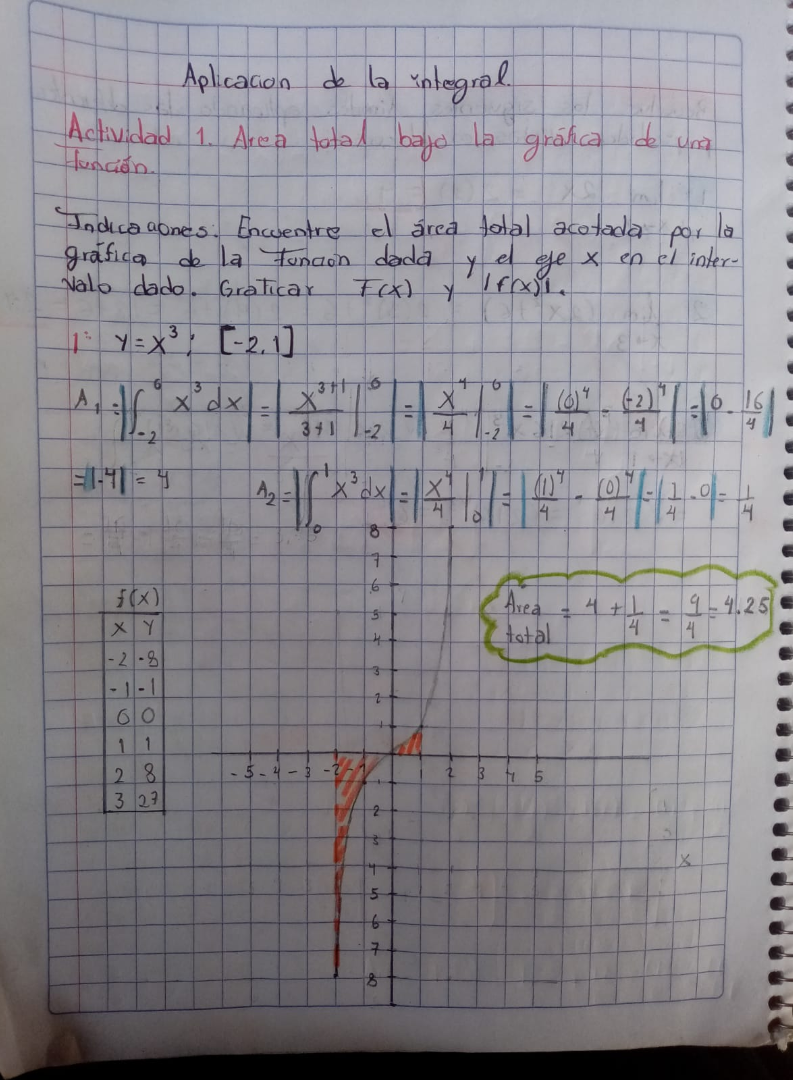 Aplicacion de la integral.
Actividad 1. Area total bajo la gráfica de una
función.
Indicaciones: Encuentre el área total acotada por la
gráfica de la funcion dada y el eje x en el inter-
valo dado. Graficar F(x) y |f(x)|.
1: y = x³; [-2, 1]
A₁ = |∫₋₂⁰ x³ dx| = |x³⁺¹/3+1 |₋₂⁰| = |x⁴/4 |₋₂⁰| = |(0)⁴/4 - (-2)⁴/4| = |0 - 16/4|
= |-4| = 4 A₂ = |∫₀¹ x³dx| = |x⁴/4 |₀¹| = |(1)⁴/4 - (0)⁴/4| = |1/4 - 0| = 1/4
8
7
6
5
4
3
2
1
f(x)
x y
-2 -8
-1 -1
0 0
1 1
2 8
3 27
Area total = 4 + 1/4 = 9/4 = 4.25
-5 -4 -3 -2 -1 1 2 3 4 5
1
2
3
4
5
6
7
8
x